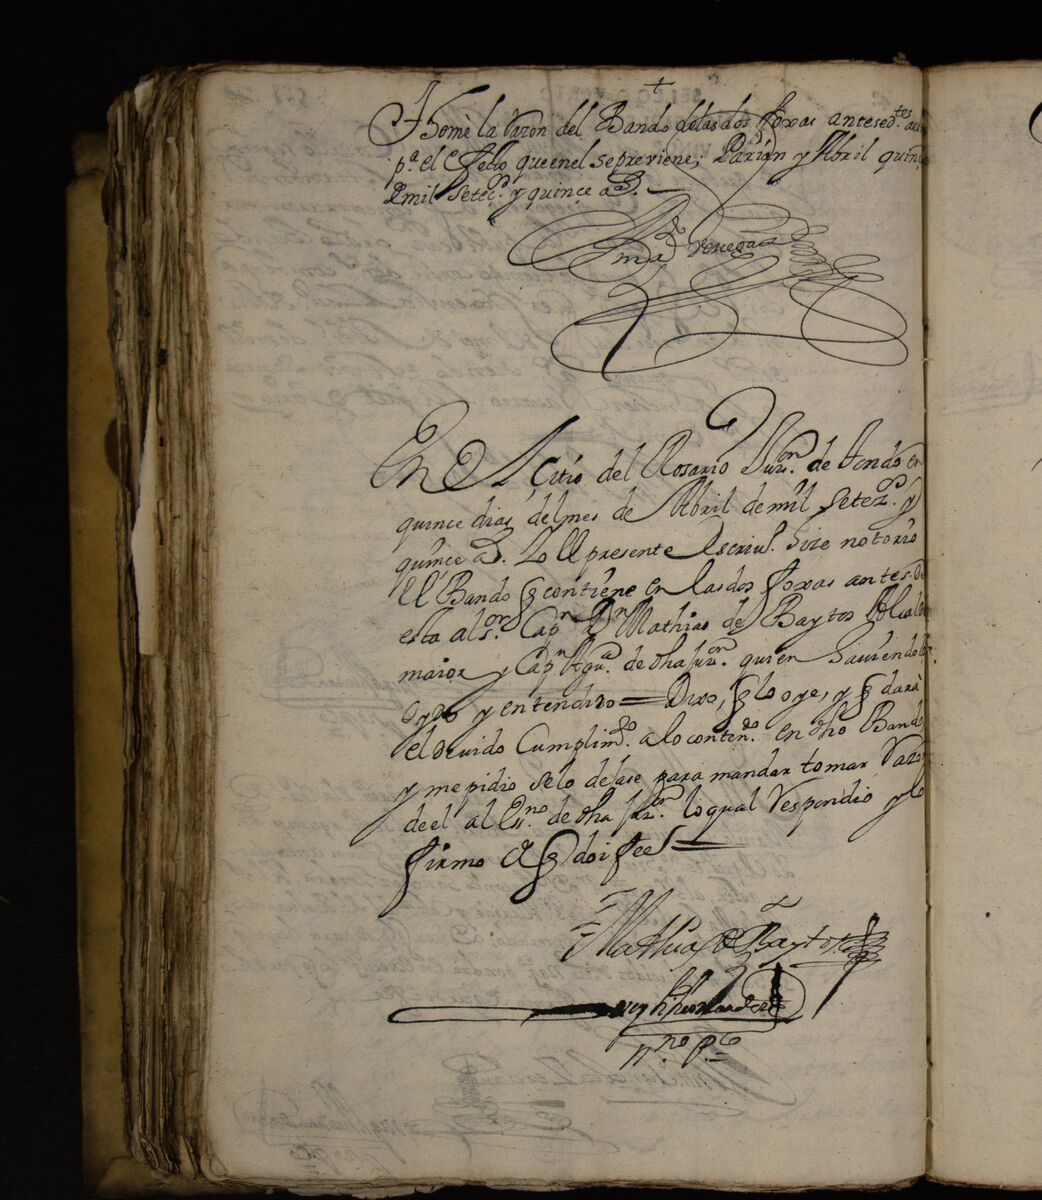 +
Thomè la razon del Bando delas dos foxas antesed.tes
p.a el efecto que en el se previene; Parian y Abril quin
de mil setec.s y quince a.s
Venegas
En el citio del Rosario Jur.on de Tondo en
quince dias del mes de Abril de mil setez.s y
quince a.s Yo el presente Escriu.o hize notorio
el Bando q contiene en las dos foxas antes de
esta al s.or Cap.n D.n Mathias de Baytos Alcalde
maior y Cap.n A gu.a de dha Jur.on quien haviendo lo
oydo y entendido = Dixo, q lo oye, y q dara
el devido Cumplim.to a lo conten.do en dho Bando
y me pidio se lo dejase para mandar tomar razon
de el al Ess.no de dha Jur.on lo qual respondió y lo
firmo de q doi fee =
Mathias de Baytos
n.no p.co